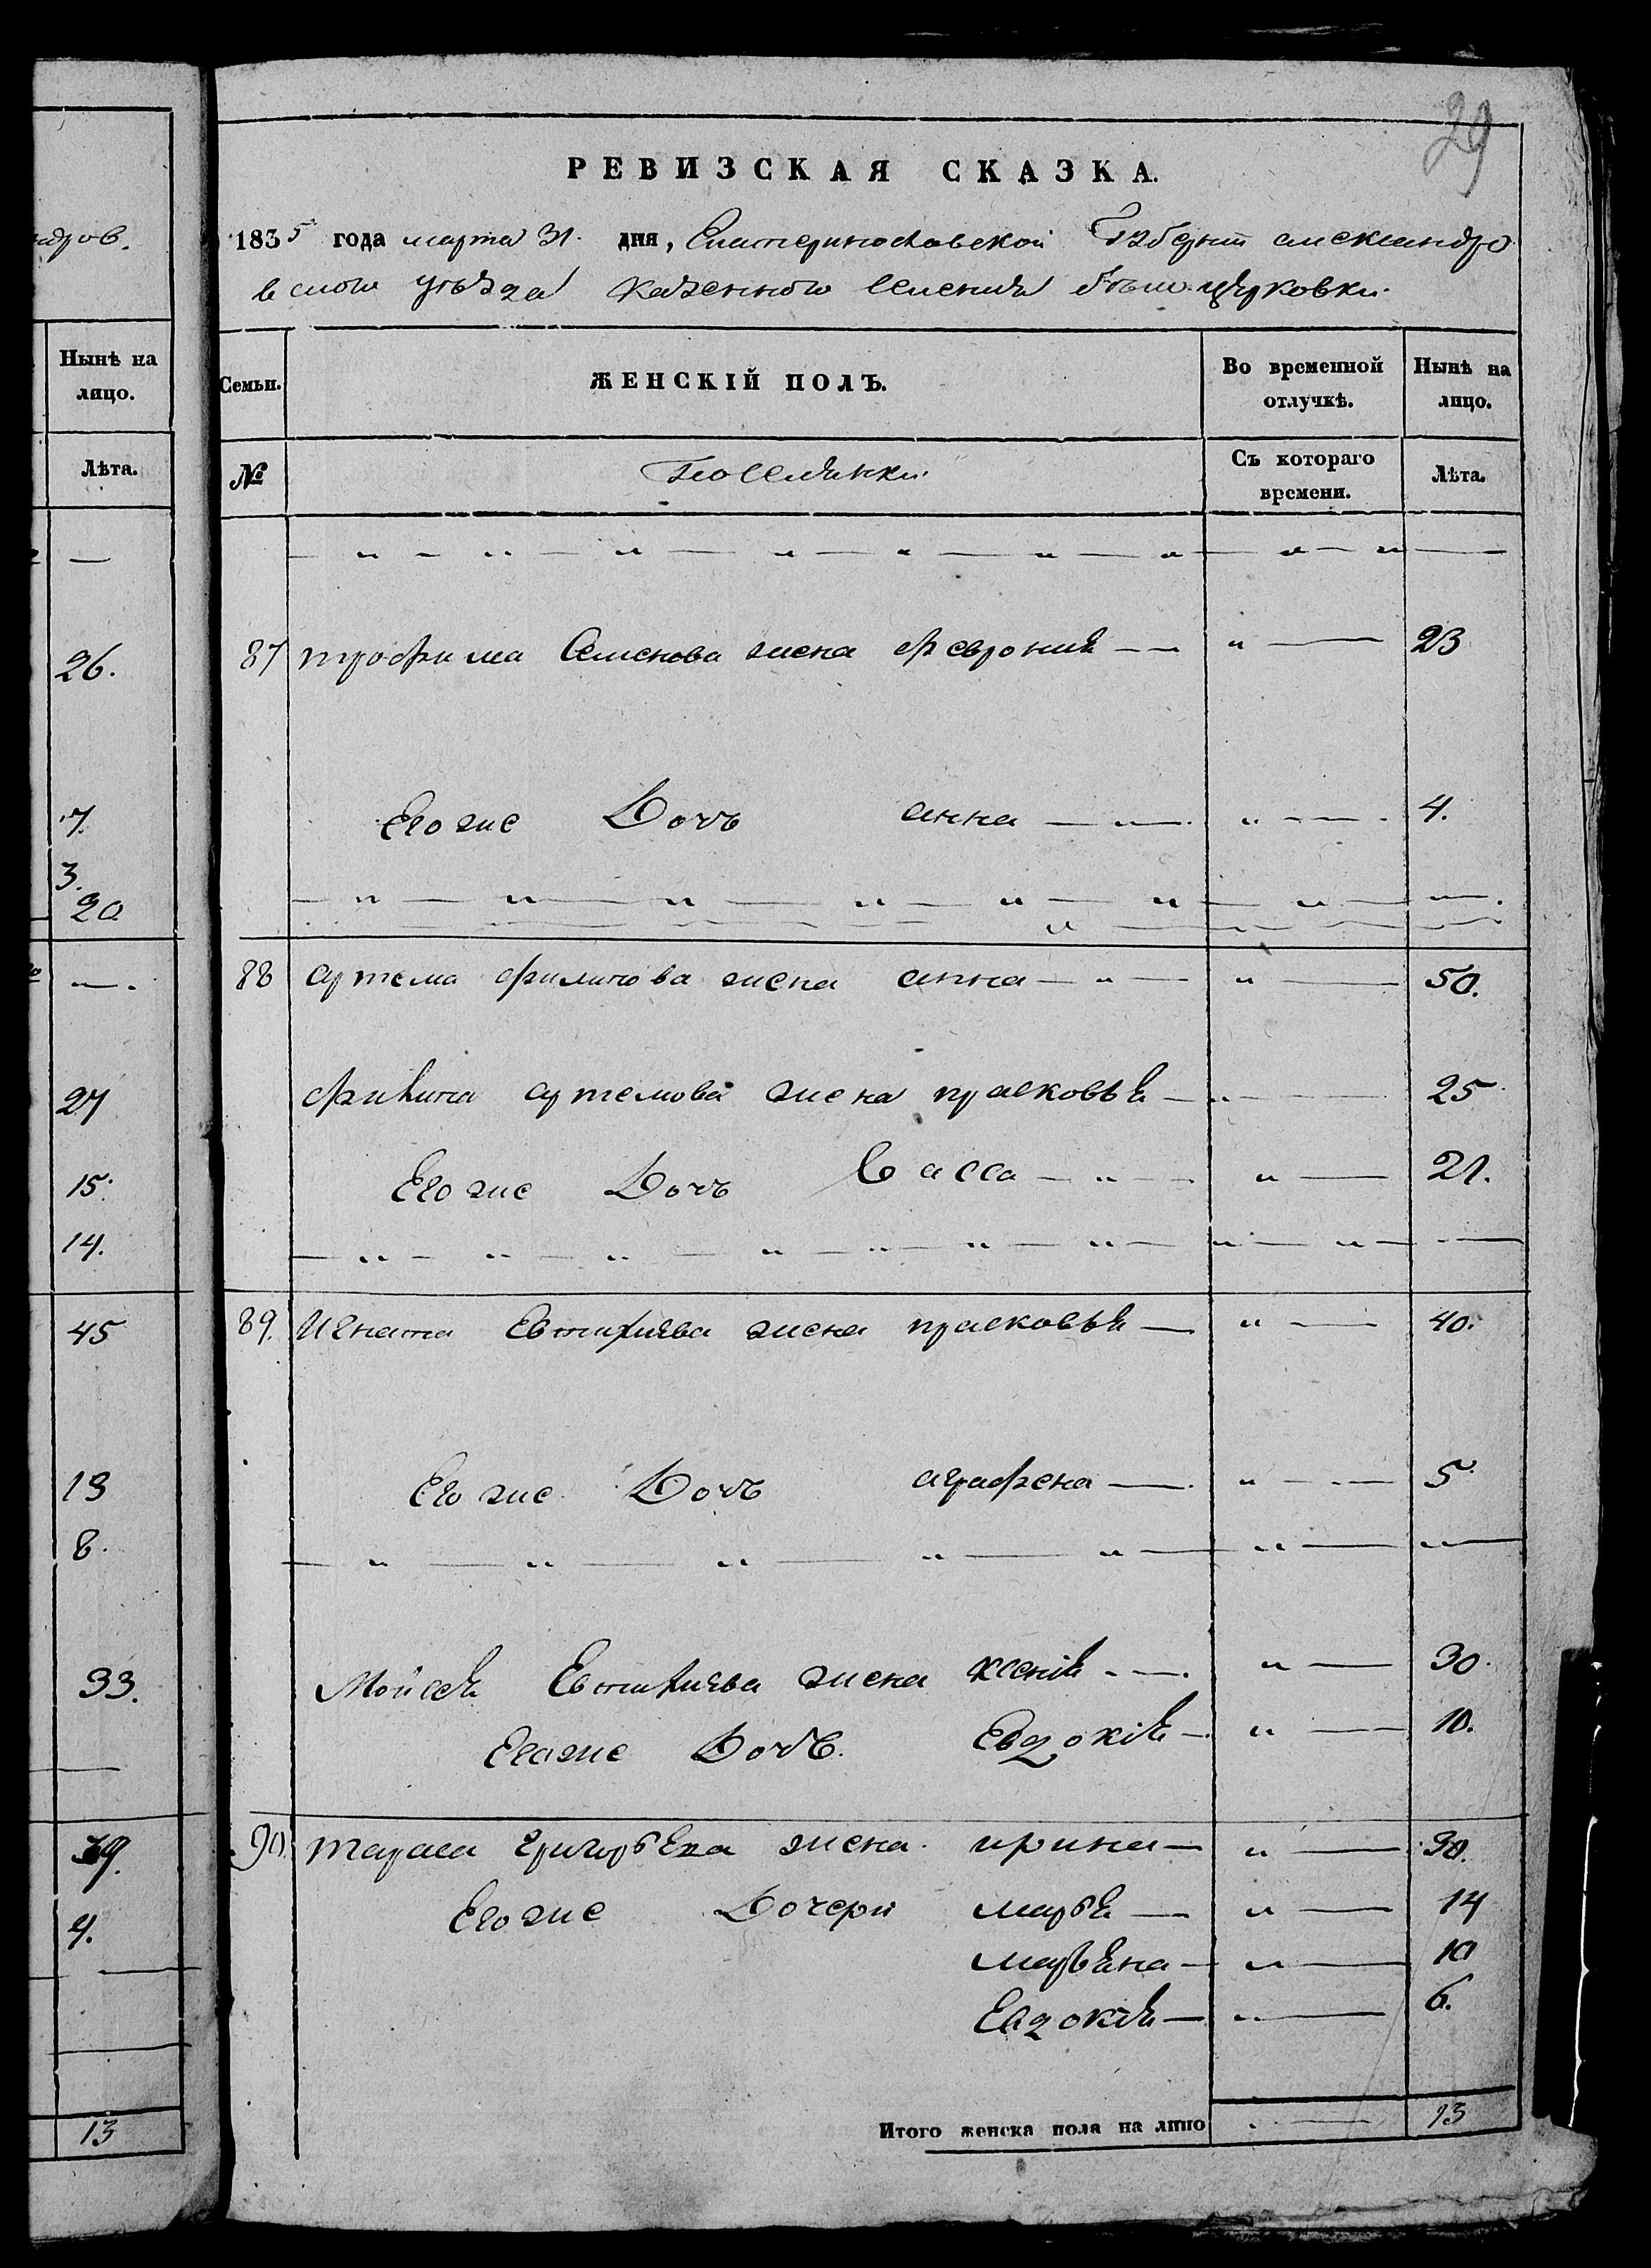 29
РЕВИЗСКАЯ СКАЗКА.
1835 года марта 31. дня, Екатеринославской Губерніи александро
вского уѣзда казенного селенія бѣло церковки.
Семьи.
ЖЕНСКІЙ ПОЛЪ.
Во временной отлучкѣ.
Нынѣ на лицо.
№
поселянки
Съ котораго времени.
Лѣта.
87 трофима Семенова жена феврония — „ — 23
Его же Дочь анна — „ — 4.
88 артема филипова жена анна — „ — 50.
артемова жена прасковья — „ — 25
Его же Дочь Васса — „ — 21.
89. Игната Евтихиева жена прасковья — „ — 40.
Его же Дочь аграфена — „ — 5
Мойсея Евтихиева жена ксения — „ — 30.
Его же Дочь. Евдокія — „ — 10.
90. тараса григорьева жена. ирина — „ — 30.
Его же Дочери марья — „ — 14
марьяна — „ — 10
Евдокія — „ — 6.
Итого женска пола на лицо — 13
ндров.
Нынѣ на
лицо.
Лѣта.
—
26.
7.
3.
20
—.
27
15.
14.
45
13
8.
33.
39.
4.
13